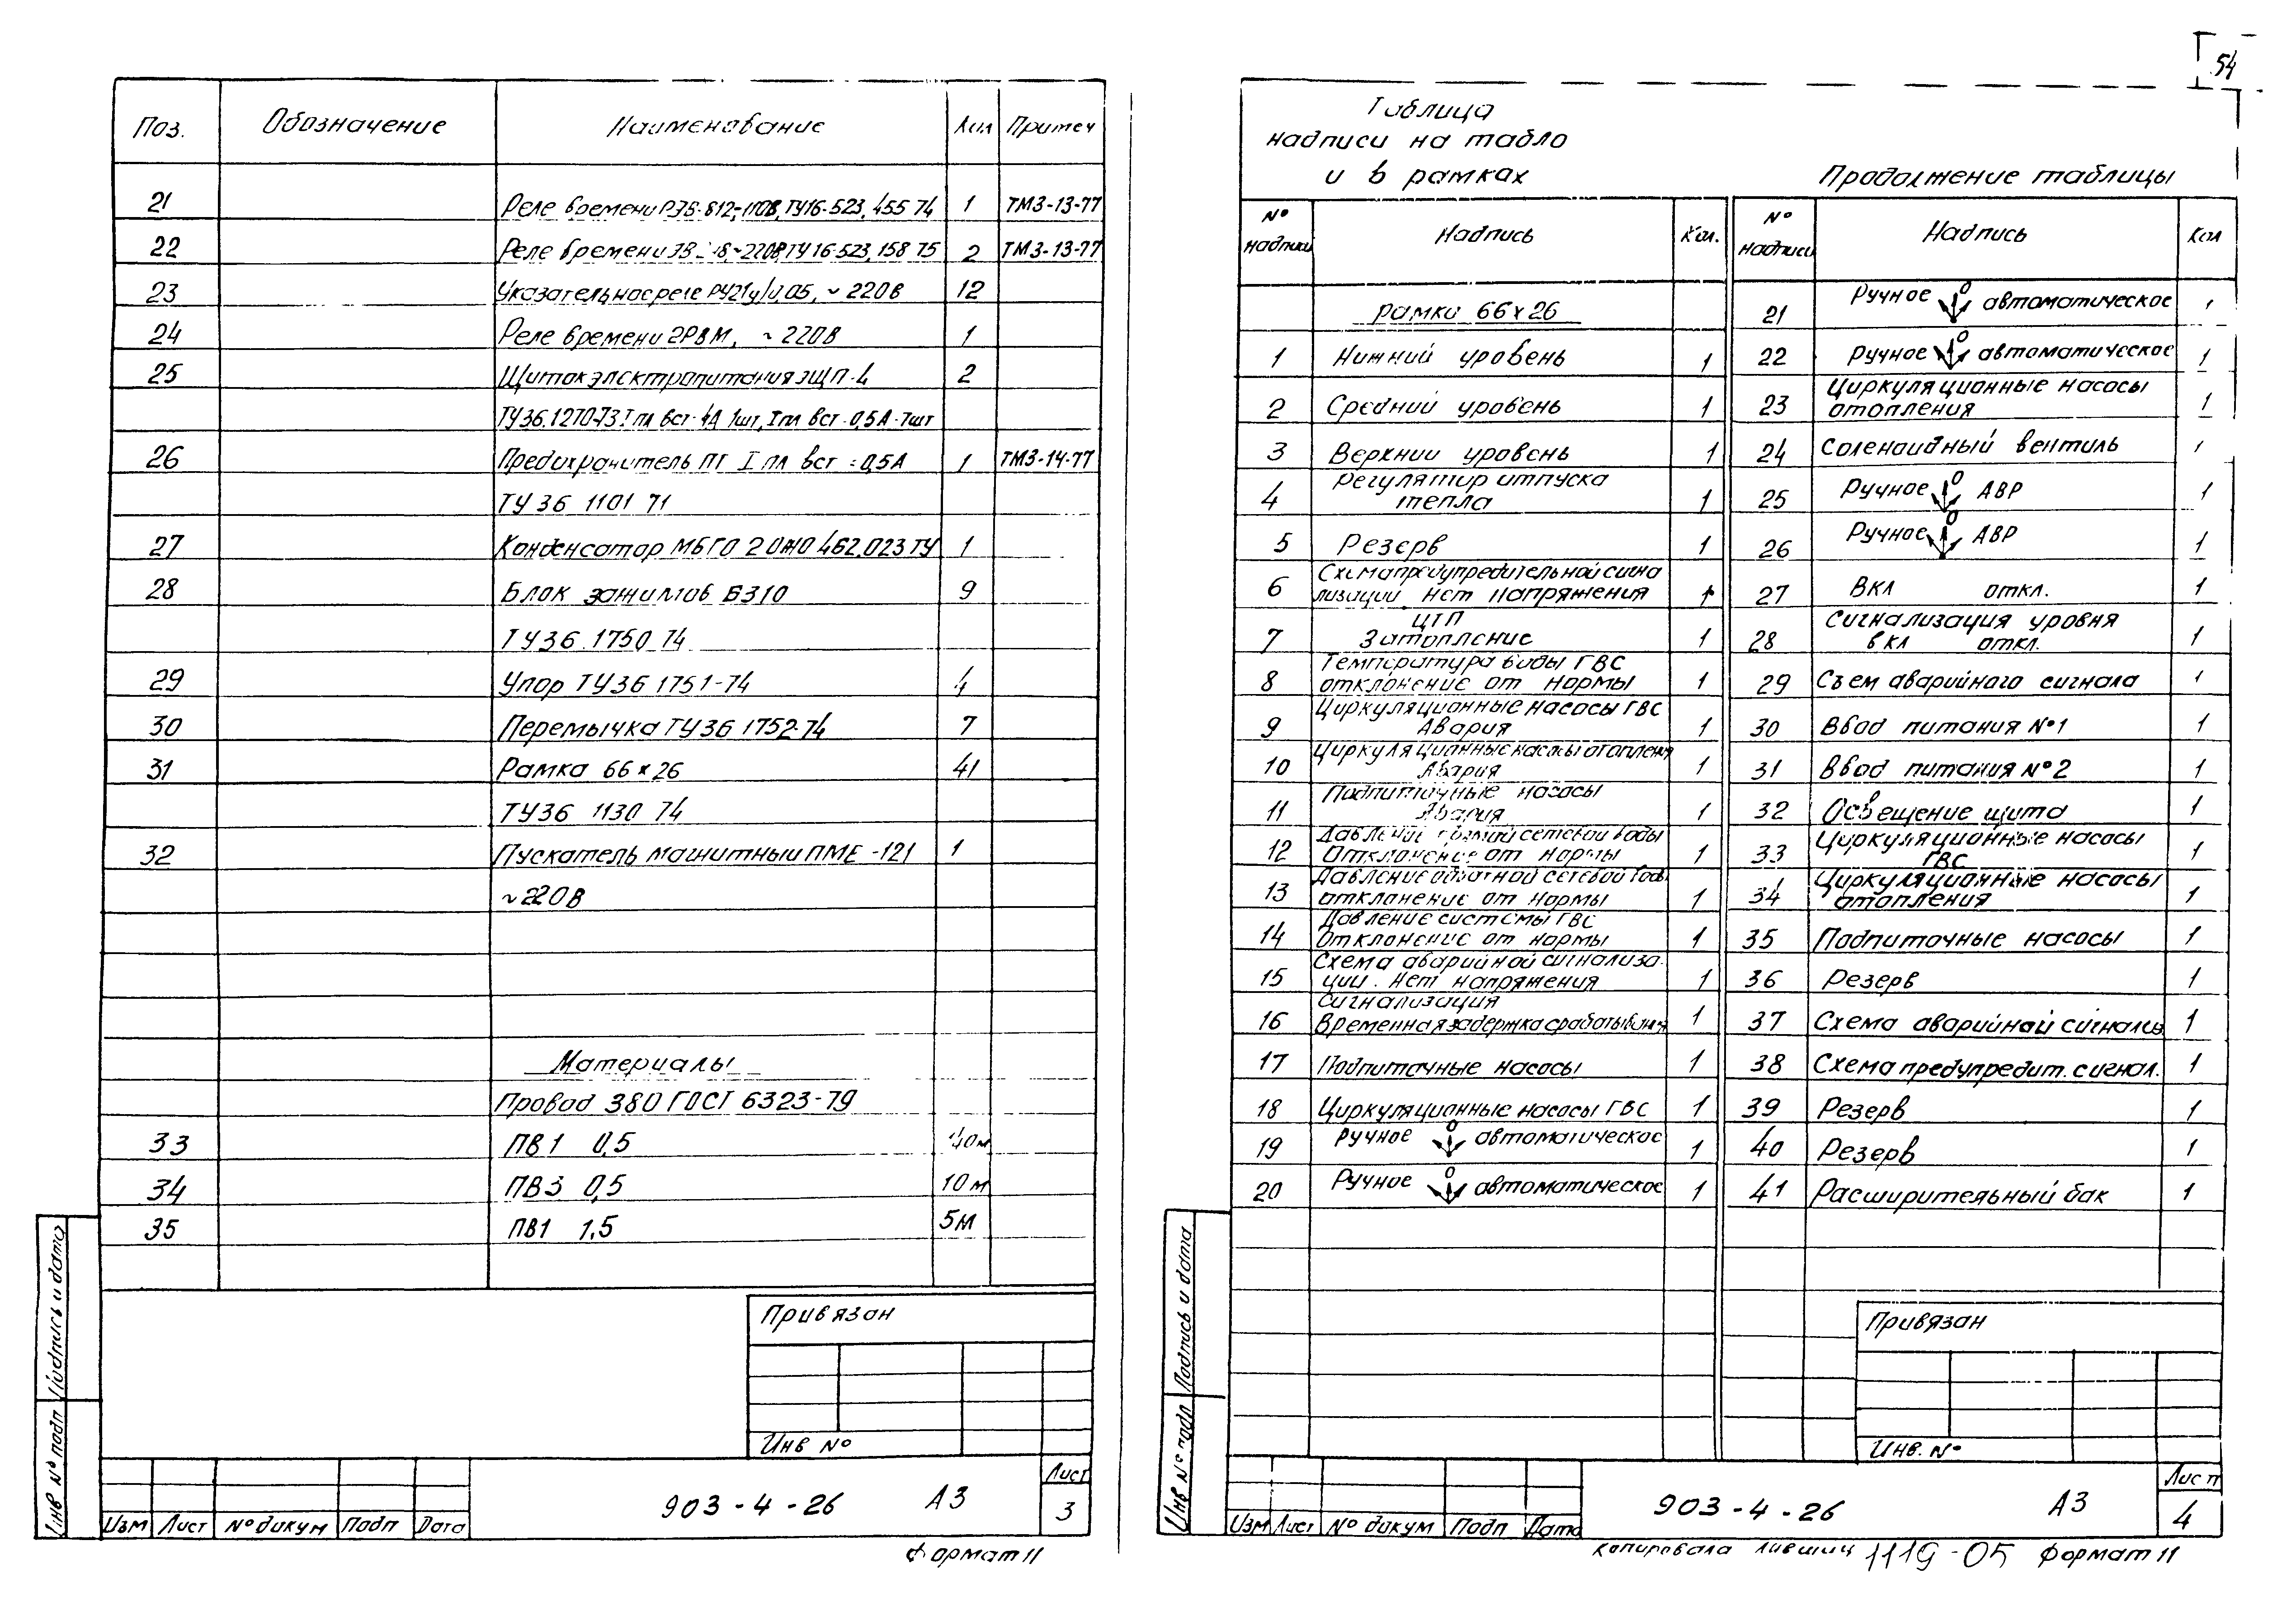 54
Поз. Обозначение Наименование Кол Примеч
21 Реле времени ТУ16-523.455 74 1 ТМ3-13-77
22 Реле времени ~220В, ТУ16-523.158 75 2 ТМ3-13-77
23 Указательное реле РУ21у/0,05, ~220В 12
24 Реле времени 2РВМ, ~220В 1
25 Щиток электропитания ЭЩП-4 2
ТУ36.1270-73 I пл вст-4А 1шт, I пл вст-0,5А-7шт
26 Предохранитель ПТ I пл вст=0,5А 1 ТМ3-14-77
ТУ36 1101 71
27 Конденсатор МБГО 2 ОЖ0 462.023 ТУ 1
28 Блок зажимов БЗ10 9
ТУ36.1750 74
29 Упор ТУ36 1751-74 4
30 Перемычка ТУ36 1752-74 7
31 Рамка 66×26 41
ТУ36 1130 74
32 Пускатель магнитный ПМЕ-121 1
~220В
Материалы
Провод 380 ГОСТ 6323-79
33 ПВ1 0,5 40м
34 ПВ3 0,5 10м
35 ПВ1 1,5 5м
Привязан
Инв №
Инв № подп Подпись и дата
Изм Лист № докум Подп Дата
903-4-26 А3
Лист
3
Формат 11
Таблица
надписи на табло
и в рамках
Продолжение таблицы
№ надписи Надпись Кол.
рамка 66×26
1 Нижний уровень 1
2 Средний уровень 1
3 Верхний уровень 1
4 Регулятор отпуска
тепла 1
5 Резерв 1
6 Схема предупредительной сигна
лизации Нет напряжения 1
7 ЦТП
Затопление 1
8 Температура воды ГВС
отклонение от нормы 1
9 Циркуляционные насосы ГВС
Авария 1
10 Циркуляционные насосы отопления
Авария 1
11 Подпиточные насосы
Авария 1
12 Давление прямой сетевой воды
Отклонение от нормы 1
13 Давление обратной сетевой воды
отклонение от нормы 1
14 Давление системы ГВС
Отклонение от нормы 1
15 Схема аварийной сигнализа-
ции. Нет напряжения 1
16 Сигнализация
Временная задержка срабатывания 1
17 Подпиточные насосы 1
18 Циркуляционные насосы ГВС 1
19 Ручное 0 автоматическое 1
20 Ручное 0 автоматическое 1
№ надписи Надпись Кол
21 Ручное 0 автоматическое 1
22 Ручное 0 автоматическое 1
23 Циркуляционные насосы
отопления 1
24 Соленоидный вентиль 1
25 Ручное 0 АВР 1
26 Ручное 0 АВР 1
27 Вкл откл. 1
28 Сигнализация уровня
вкл откл. 1
29 Съем аварийного сигнала 1
30 Ввод питания №1 1
31 Ввод питания №2 1
32 Освещение щита 1
33 Циркуляционные насосы
ГВС 1
34 Циркуляционные насосы
отопления 1
35 Подпиточные насосы 1
36 Резерв 1
37 Схема аварийной сигнализ 1
38 Схема предупредит. сигнал. 1
39 Резерв 1
40 Резерв 1
41 Расширительный бак 1
Привязан
Инв. №
Инв № подп Подпись и дата
Изм Лист № докум Подп Дата
903-4-26 А3
Лист
4
Копировала Лившиц 1119-05 Формат 11